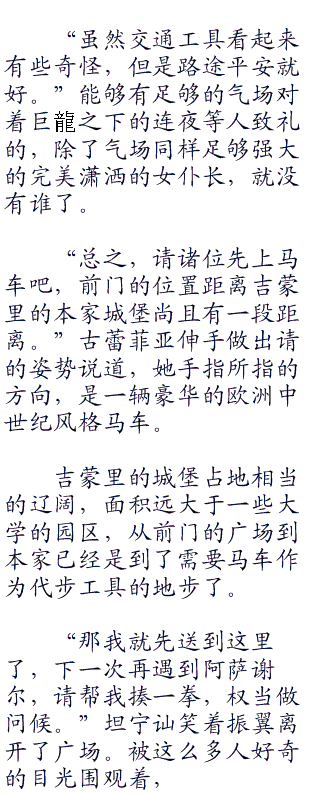 “虽然交通工具看起来
有些奇怪，但是路途平安就
好。”能够有足够的气场对
着巨龍之下的连夜等人致礼
的，除了气场同样足够强大
的完美潇洒的女仆长，就没
有谁了。
“总之，请诸位先上马
车吧，前门的位置距离吉蒙
里的本家城堡尚且有一段距
离。”古蕾菲亚伸手做出请
的姿势说道，她手指所指的
方向，是一辆豪华的欧洲中
世纪风格马车。
吉蒙里的城堡占地相当
的辽阔，面积远大于一些大
学的园区，从前门的广场到
本家已经是到了需要马车作
为代步工具的地步了。
“那我就先送到这里
了，下一次再遇到阿萨谢
尔，请帮我揍一拳，权当做
问候。”坦宁讪笑着振翼离
开了广场。被这么多人好奇
的目光围观着，